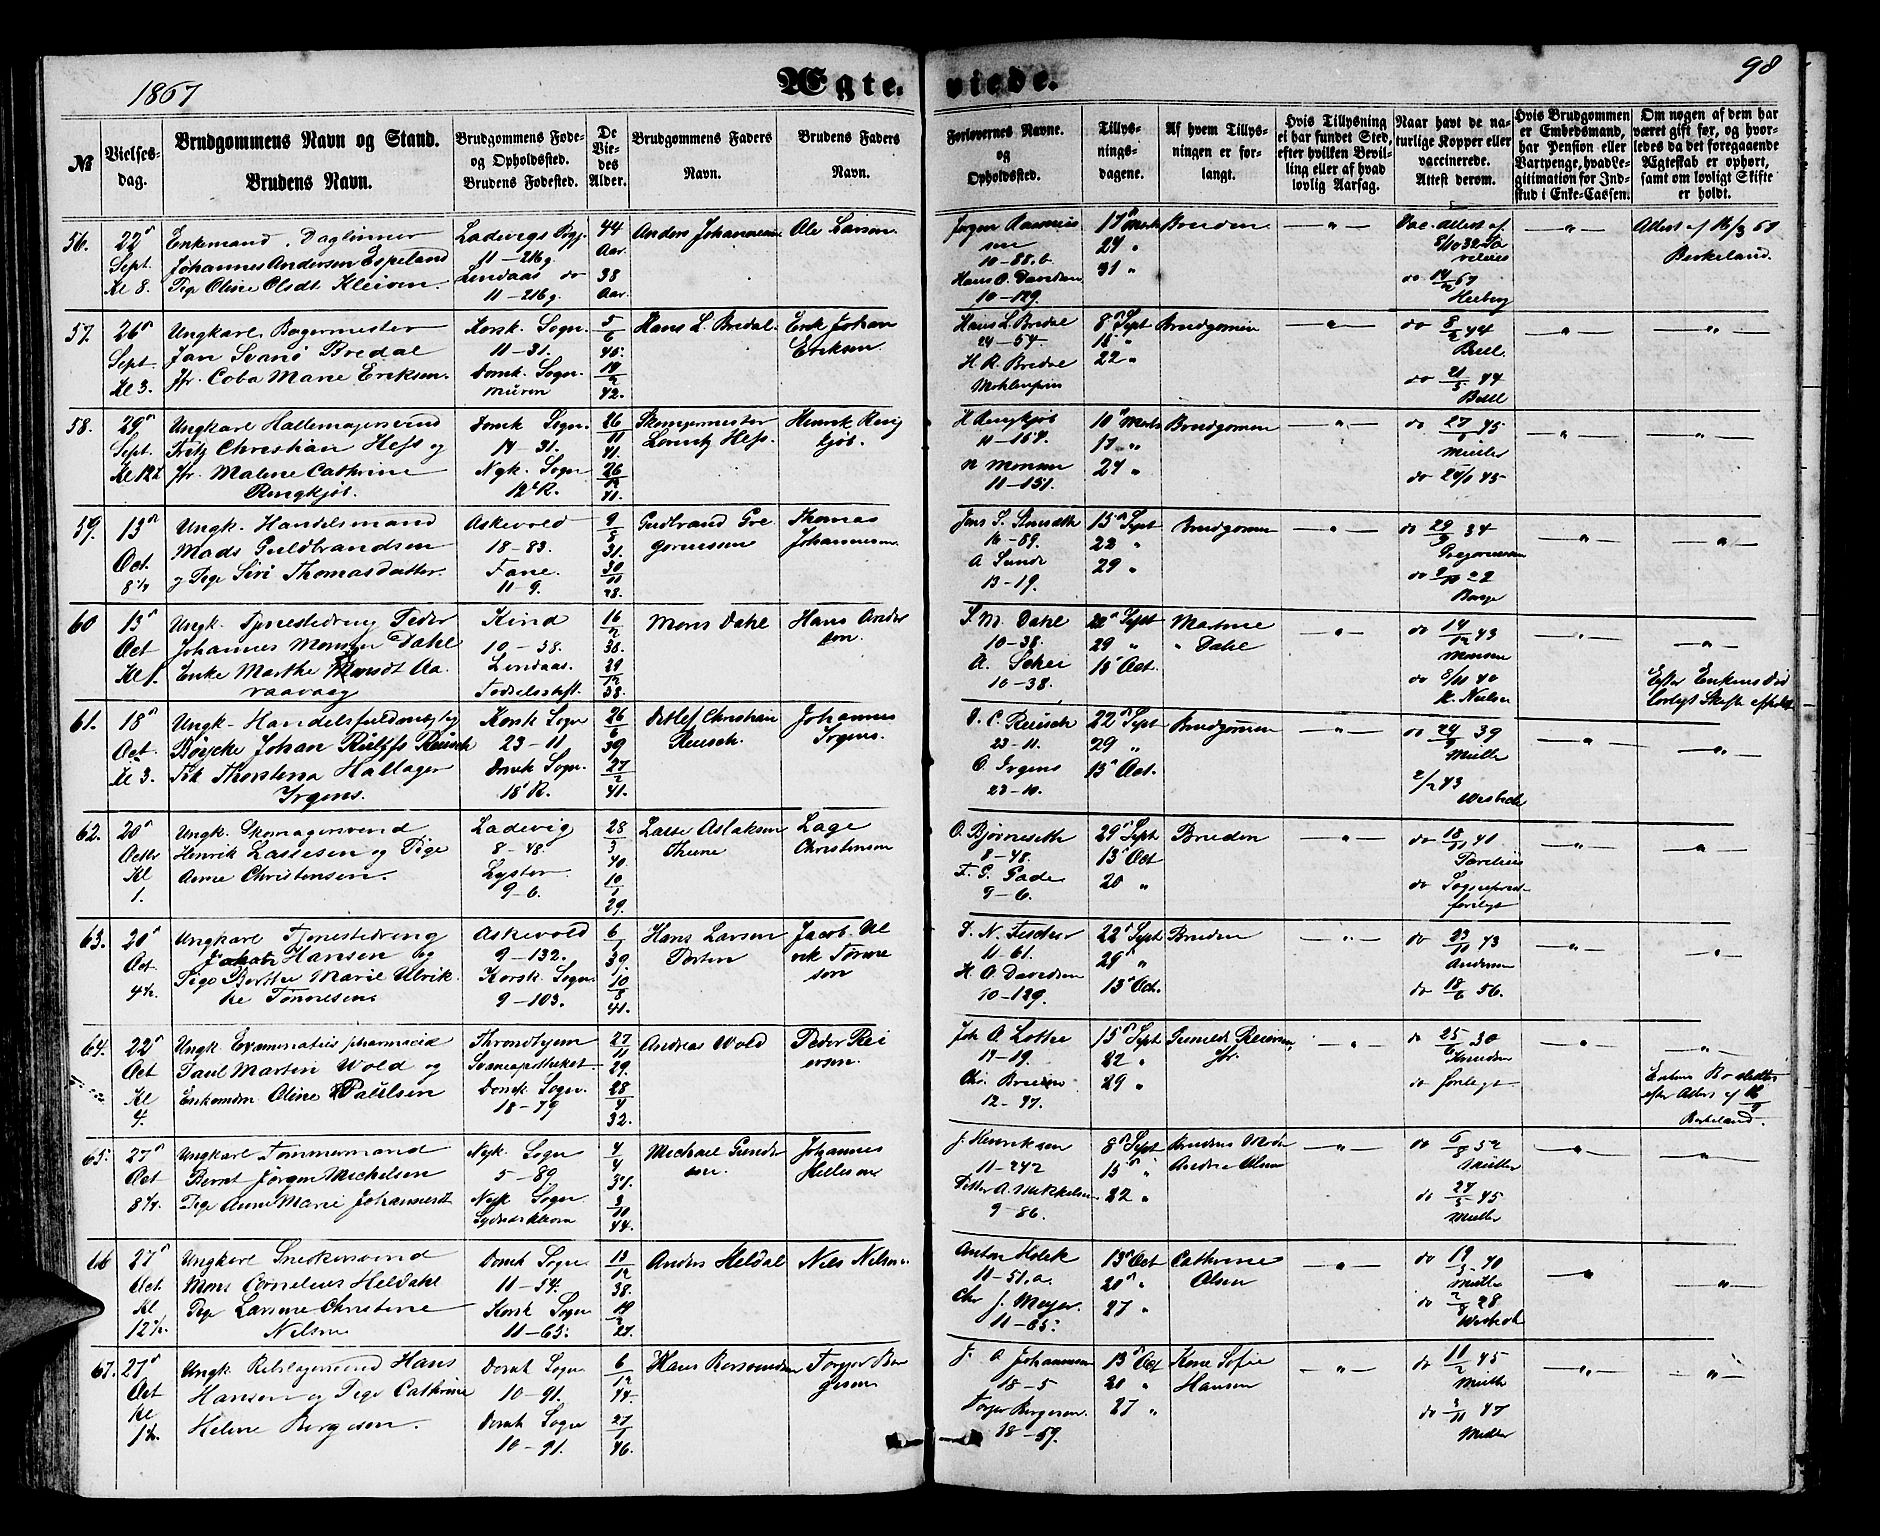 1867
Ægte-
viede.
98
№
Vielses-
dag.
Brudgommens Navn og Stand.
Brudens Navn.
Brudgommens Føde-
og Opholdssted.
Brudens Fødested.
De
Vie-
des
Alder.
Brudgommens Faders
Navn.
Brudens Faders
Navn.
Forlovernes Navne.
og
Opholdssted.
Tillys-
nings-
dagene.
Af hvem Tillys-
ningen er for-
langt.
Hvis Tillysning
ei har fundet Sted,
efter hvilken Bevil-
ling eller af hvad
lovlig Aarsag.
Naar havt de na-
turlige Kopper eller
vaccinerede.
Attest derom.
Hvis Brudgommen
er Embedsmand,
har Pension eller
Vartpenge, hvad Le-
gitimation for Ind-
skud i Enke-Cassen.
Om nogen af dem har
været gift før, og hvor-
ledes da det foregaaende
Ægteskab er ophørt,
samt om lovligt Skifte
er holdt.
56.
22
Sept.
Kl 8.
Enkemand, Daglønner
Johannes Andersen Espeland
Pige Oline Olsdt Kleiven.
11-216g.
Lindaas do
11-216g.
44
Aar.
38
Aar.
Anders Johannesen
Ole Larsen
10-88.b
Hans O. Davidsen
10-129.
17 Marts
24 "
31 "
Bruden
Attest af 16/3 67
Berkeland.
57.
26
Sept.
Kl 3.
Ungkarl Bagermester
Jan Svanø Bredal
Jfr. Coba Marie Eriksen.
Korsk. Sogn.
11-31.
Domk. Sogn.
Muren
5/6 40.
19/2 42.
Hans L. Bredal.
Erik Johan
Eriksen.
Hans L. Bredal
24-54.
H. R. Bredal
Mohlenpris
8 Sept
15 "
22 "
Brudgomen
do 8/2 44
do 21/5 44
58.
29
Sept.
Ungkarl Hattemagersvend
Fritz Christian Hess og
Jfr. Malene Cathrine
Ringkjøb.
Domk Sogn.
14-31.
Nyk. Sogn
12 R.
26/11 41.
26/12 41.
Lorentz Hess.
Henrik Ring
kjøb.
H Ringkjøb
11-157.
N Monsen
11-131.
10 Marts
17 "
24 "
Brudgomen
do 27/6 45
Müller
59.
13
Oct.
8½
Ungk. Handelsmand
Mads Guldbrandsen
og Pige Siri Thomasdatter.
Askevold
18-83.
Fane.
11-9.
9/8 31.
30/11 28.
Gudbrand Gre
goriussen
Thomas
Johannesen.
16-89.
A Sunde
13-19.
15 Sept
22 "
29 "
Brudgomen
60
13
Oct
Kl 1.
Ungk. Tjenestedreng Peder
Johannes Monsen Dahl
Enke Marthe Monsdt Aa-
raavaag
Kind
10-38.
Lindaas.
Fødselsstift.
16/2 38.
29/12 38.
Mons Dahl
Hans Ander
sen.
S. M. Dahl
10-38.
10-38.
29 "
Dahl
do 14/12 43
Monsen
K. Nielsen
Efter Enkens Død
Lovligt Skifte afholdt
61.
18
Oct.
Kl 3.
Böycke Johan Rülffs Reüsch
Frk Thorstena Hallager
Irgens.
Korsk Sogn
23-11
Domk Sogn.
15 R.
26/6 39
27/2 41.
Detlef Christian
Reusch.
Johannes
Irgens.
D. C. Reüsch
23-11.
O. Irgens
23-10.
22 Sept
29 "
Brudgommen
62.
20
Octbr
Kl
1.
Ungk. Skomagersvend
Henrik Lassesen og Pige
Anne Christensen.
Ladevig
8-48.
Lyster
9-6.
28/3 40.
10/1 29.
Lasse Aslaksen
Lage
Christensen
O. Bjørneseth
8-48.
9-6.
29 Sept
13 Oct
20 "
Bruden
63.
20
Oct
4½
Ungkarl Tjenestedreng
Hansen og
Pige Berthe Marie Ulrik-
ke Tønnesen.
Askevold
9-132.
Korsk. Sogn.
9-103.
6/1 39.
10/8 41.
Hans Larsen
Jacob Ul
rik Tønne
sen
D. N. Fischer
11-61.
H. O. Davidsen
10-129.
22 Sept
29 "
13 Oct.
Bruden
do 23/10 43
Andersen
do 18/6 56.
64.
22
Oct
Kl
4.
Ungk. Examinatus pharmacia
Paul Martin Wold og
Oline Paülsen
Throndhjem
Svaneapotheket
Domk Sogn.
18-79
27/11 29.
28/4 32.
Andreas Wold
Peder Rei
ersen.
Joh A. Lothe
12-97.
15 Sept
22 "
29 "
do 25/6 30
Knudsen
do forlegt
Berkeland.
65.
27
Oct
8½.
Ungkarl Tømmermand
Bernt Jörgen Michelsen
Pige Anne Marie Johannesdt
Nyk. Sogn
5-89.
Nyk Sogn
4/4 37.
2/10 44.
Michael Gunder
sen.
Johannes
J. Henriksen
11-242
Petter A. Mikkelsen
9-86.
8 Sept
15 "
22 "
Brudens Moder
Andrea Olsen
do 6/8 52
Müller
do 24/5 45
Müller
66
27
Oct.
Kl
12½.
Ungkarl Snedkersvend
Mons Cornelius Heldahl
Pige Larine Christine
Nilsen
Domk Sogn
11-54.
Korsk Sogn
11-65.
13/12 38.
19/2 27.
Anders Heldal
Nils Nilsen
Anton Holck
11-51.a.
Chr J. Meyer.
11-65.
13 Oct
20 "
27 "
Cathrine
Olsen
do 19/3 40
Müller
do 2/8 28
67.
27
Oct
Kl
1½.
Ungk Rebslagersvend Hans
Hansen og Pige Cathrine
Helene Børgesen.
Domk Sogn
10-91.
Domk Sogn
10-91.
6/12 44.
27/1 46.
Torger Bør
gesen
J. A. Johannesen
18-5
Torger Børgesen.
18-59.
13 Oct
20 "
27 "
Kone Sofie
Hansen
do 11/2 45
Müller
do 3/11 47
Müller